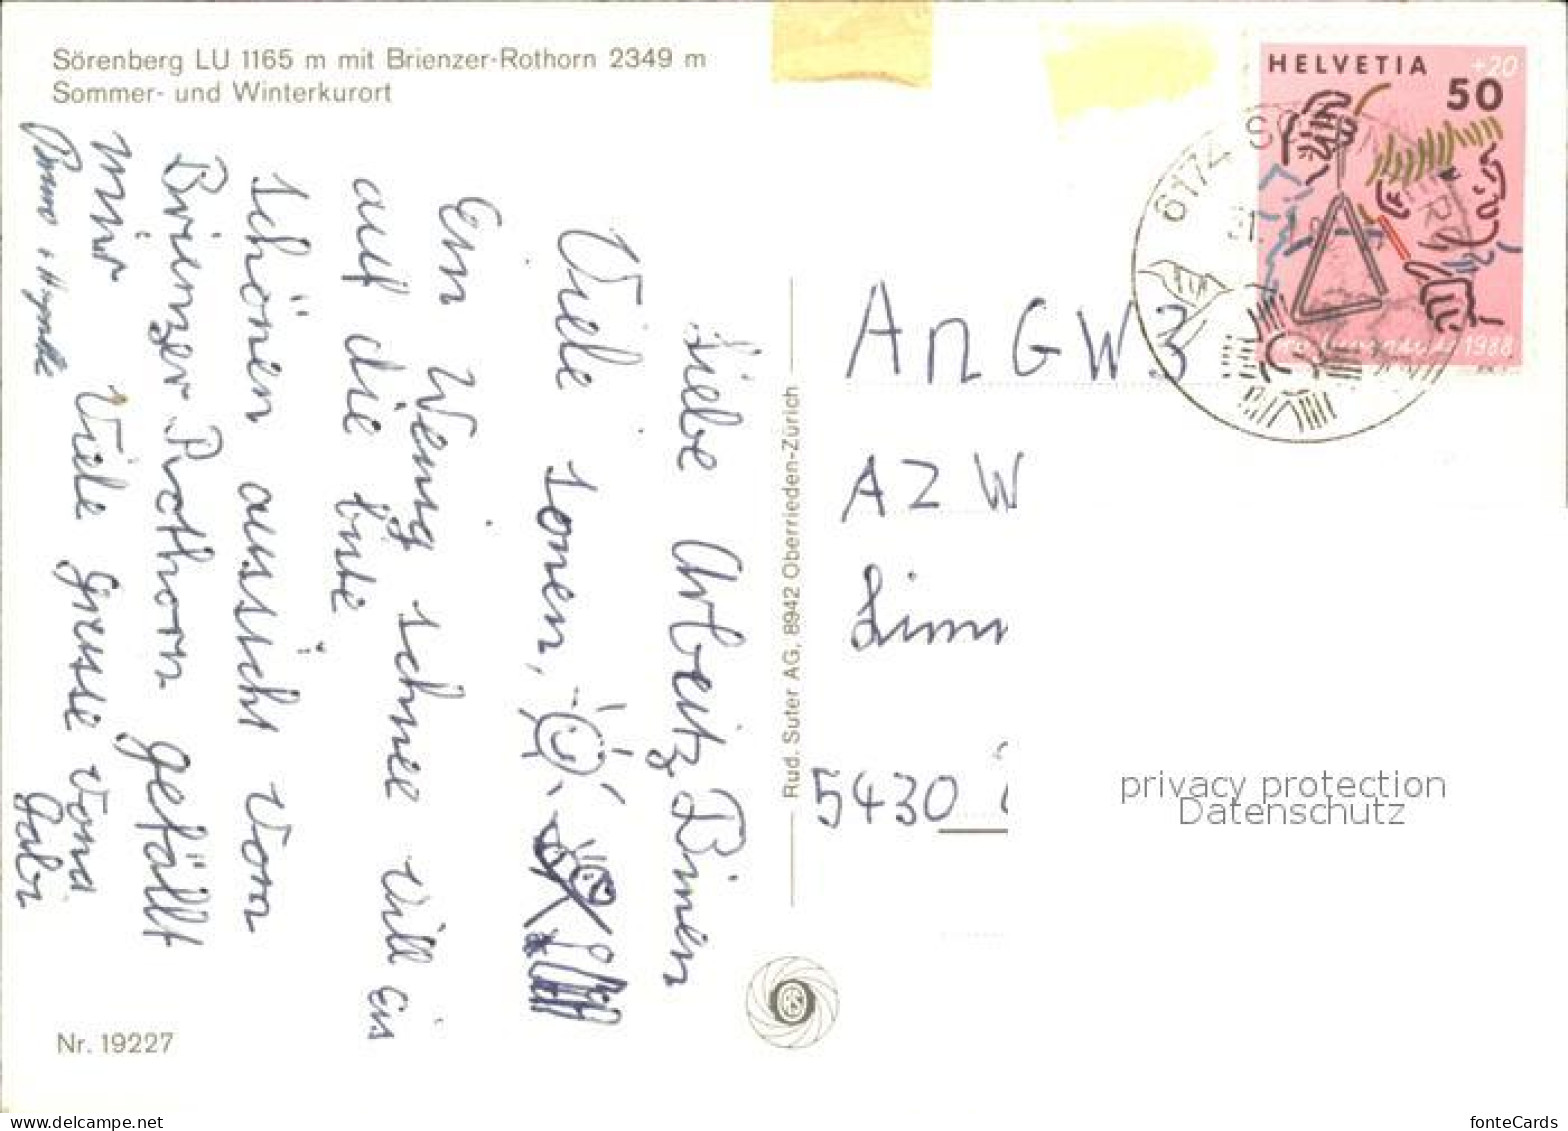 Sörenberg LU 1165 m mit Brienzer-Rothorn 2349 m
Sommer- und Winterkurort
Liebe Arbeitz Binen
Viele sonen,
Ein Wenig schnee will eis
auf die
schönen aussicht vom
Brienzer Rothorn gefällt
mir Viele grüsse vona
Gabi
Nr. 19227
Rud. Suter AG, 8942 Oberrieden-Zürich
HELVETIA
+20
50
1988
6174
An GW 3
AZW
Limm
5430
privacy protection
Datenschutz
www.delcampe.net
fonteCards